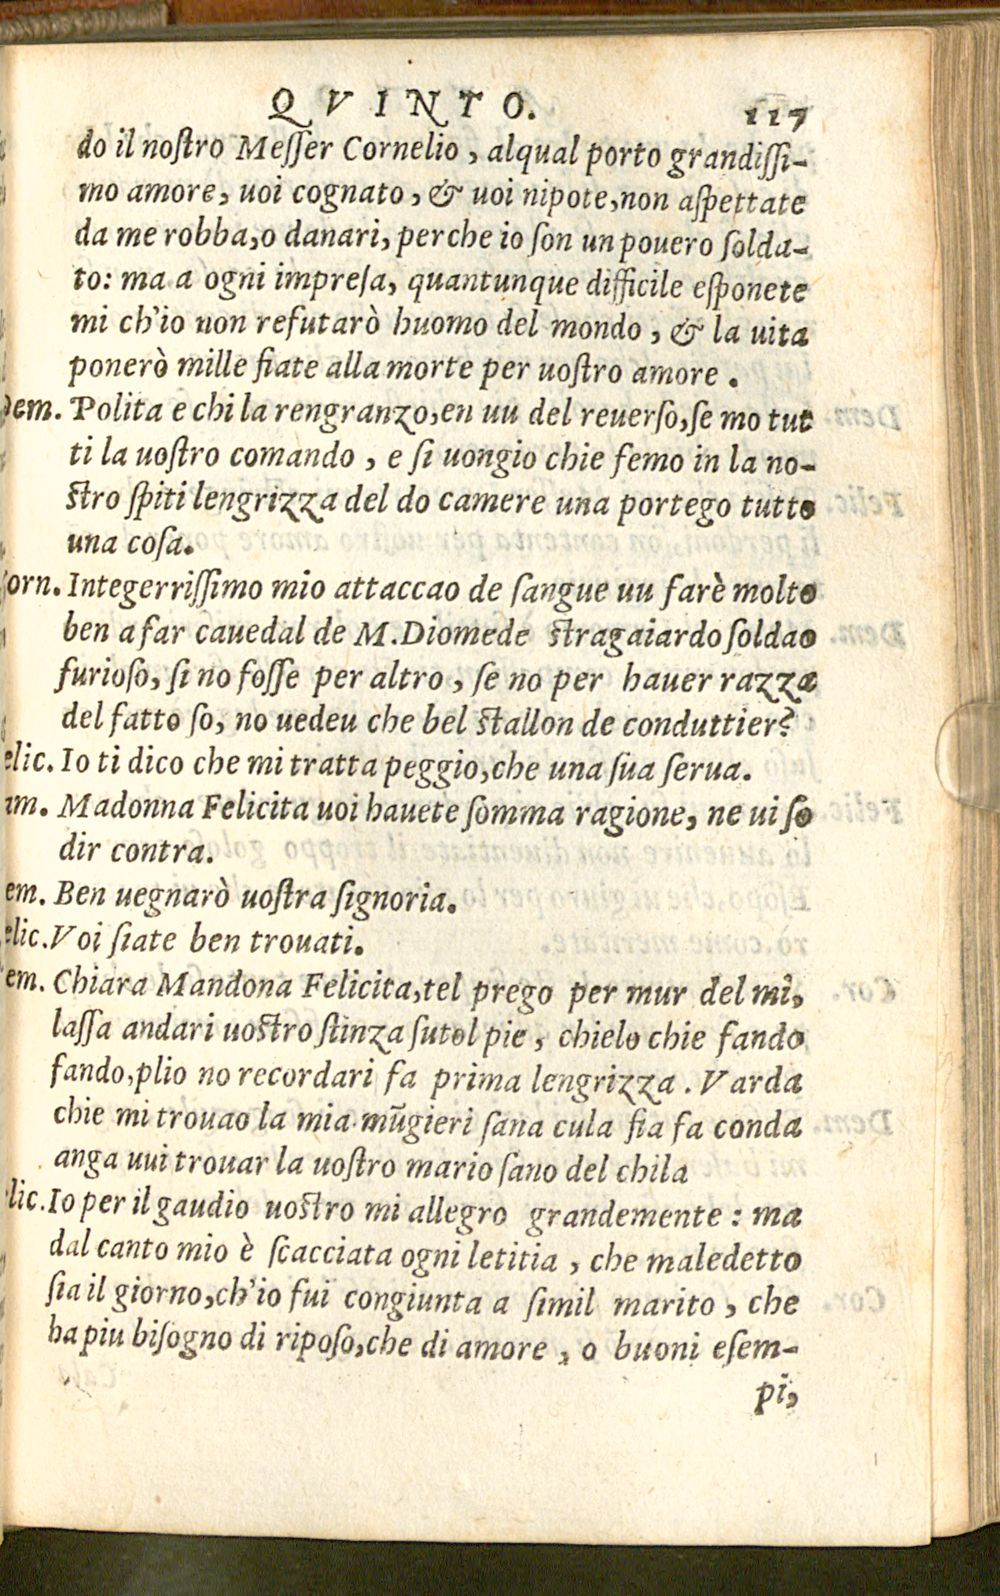 QVINTO. 117
do il nostro Messer Cornelio, alqual porto grandissi-
mo amore, uoi cognato, & uoi nipote, non aspettate
da me robba, o danari, perche io son un pouero solda-
to: ma a ogni impresa, quantunque difficile esponete
mi ch'io non refutarò huomo del mondo, & la uita
ponerò mille fiate alla morte per uostro amore.
Dem. Polita e chi la rengranzo, en uu del reuerso, se mo tut
ti la uostro comando, e si uongio chie femo in la no-
stro spiti lengrizza del do camere una portego tutto
una cosa.
Corn. Integerrissimo mio attaccao de sangue uu farè molto
ben a far cauedal de M. Diomede stragaiardo soldao
furioso, si no fosse per altro, se no per hauer razza
del fatto so, no uedeu che bel stallon de conduttier?
elic. Io ti dico che mi tratta peggio, che una sua serua.
am. Madonna Felicita uoi hauete somma ragione, ne ui so
dir contra.
em. Ben uegnarò uostra signoria.
elic. Voi siate ben trouati.
em. Chiara Mandona Felicita, tel prego per mur del mi,
lassa andari uostro stinza sutol pie, chielo chie fando
fando, plio no recordari fa prima lengrizza. Varda
chie mi trouao la mia mũgieri sana cula fia fa conda
anga uui trouar la uostro mario sano del chila
lic. Io per il gaudio uostro mi allegro grandemente: ma
dal canto mio è scacciata ogni letitia, che maledetto
sia il giorno, ch'io fui congiunta a simil marito, che
ha piu bisogno di riposo, che di amore, o buoni esem-
pi,